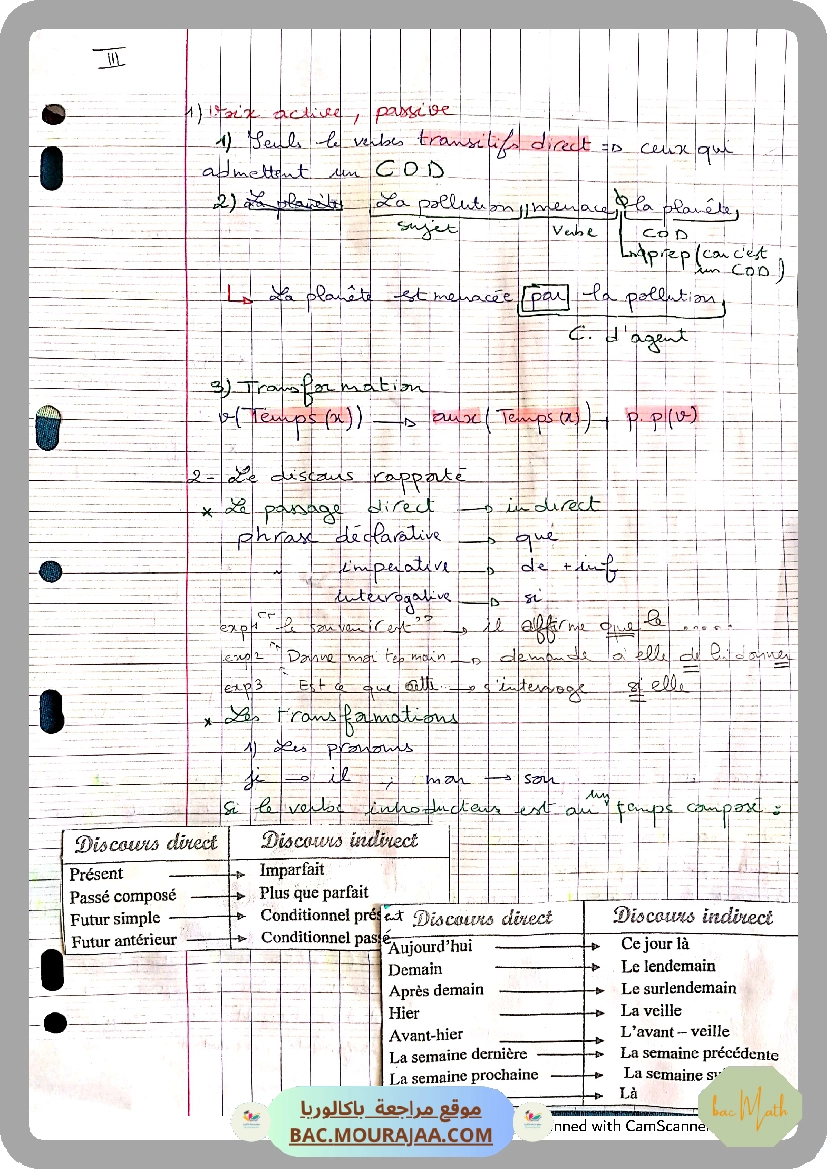 III
1) Voix active, passive
1) Seuls le verbes transitifs direct => ceux qui
admettent un COD
2) La planète La pollution menace la planète
sujet Verbe COD
prep (car c'est
un COD)
La planète est menacée par la pollution
C. d'agent
3) Transformation
v(Temps(x)) → aux(Temps(x)) + p.p(v)
2- Le discours rapporté
* Le passage direct → indirect
phrase déclarative → que
" impérative → de + inf
interrogative → si
exp1 "le souvenir est" → il affirme que le .....
exp2 " Donne moi tes main → demande à elle de lui donner
exp3 " Est ce que elle... → s'interroge si elle
* Les transformations
1) Les pronoms
je → il ; mon → son
Si le verbe introducteur est au un temps composé :
Discours direct Discours indirect
Présent → Imparfait
Passé composé → Plus que parfait
Futur simple → Conditionnel présent
Futur antérieur → Conditionnel passé
Discours direct Discours indirect
Aujourd'hui → Ce jour là
Demain → Le lendemain
Après demain → Le surlendemain
Hier → La veille
Avant-hier → L'avant – veille
La semaine dernière → La semaine précédente
La semaine prochaine → La semaine
→ Là
موقع مراجعة باكالوريا
BAC.MOURAJAA.COM
nned with CamScanner
bac Math